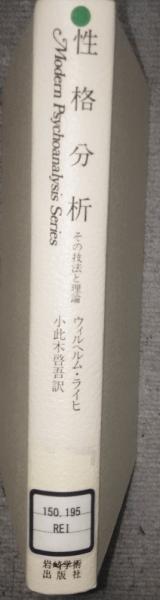 性格分析
その技法と理論
Modern Psychoanalysis Series
ウィルヘルム・ライヒ
小此木啓吾訳
150.195
REI
岩崎学術
出版社